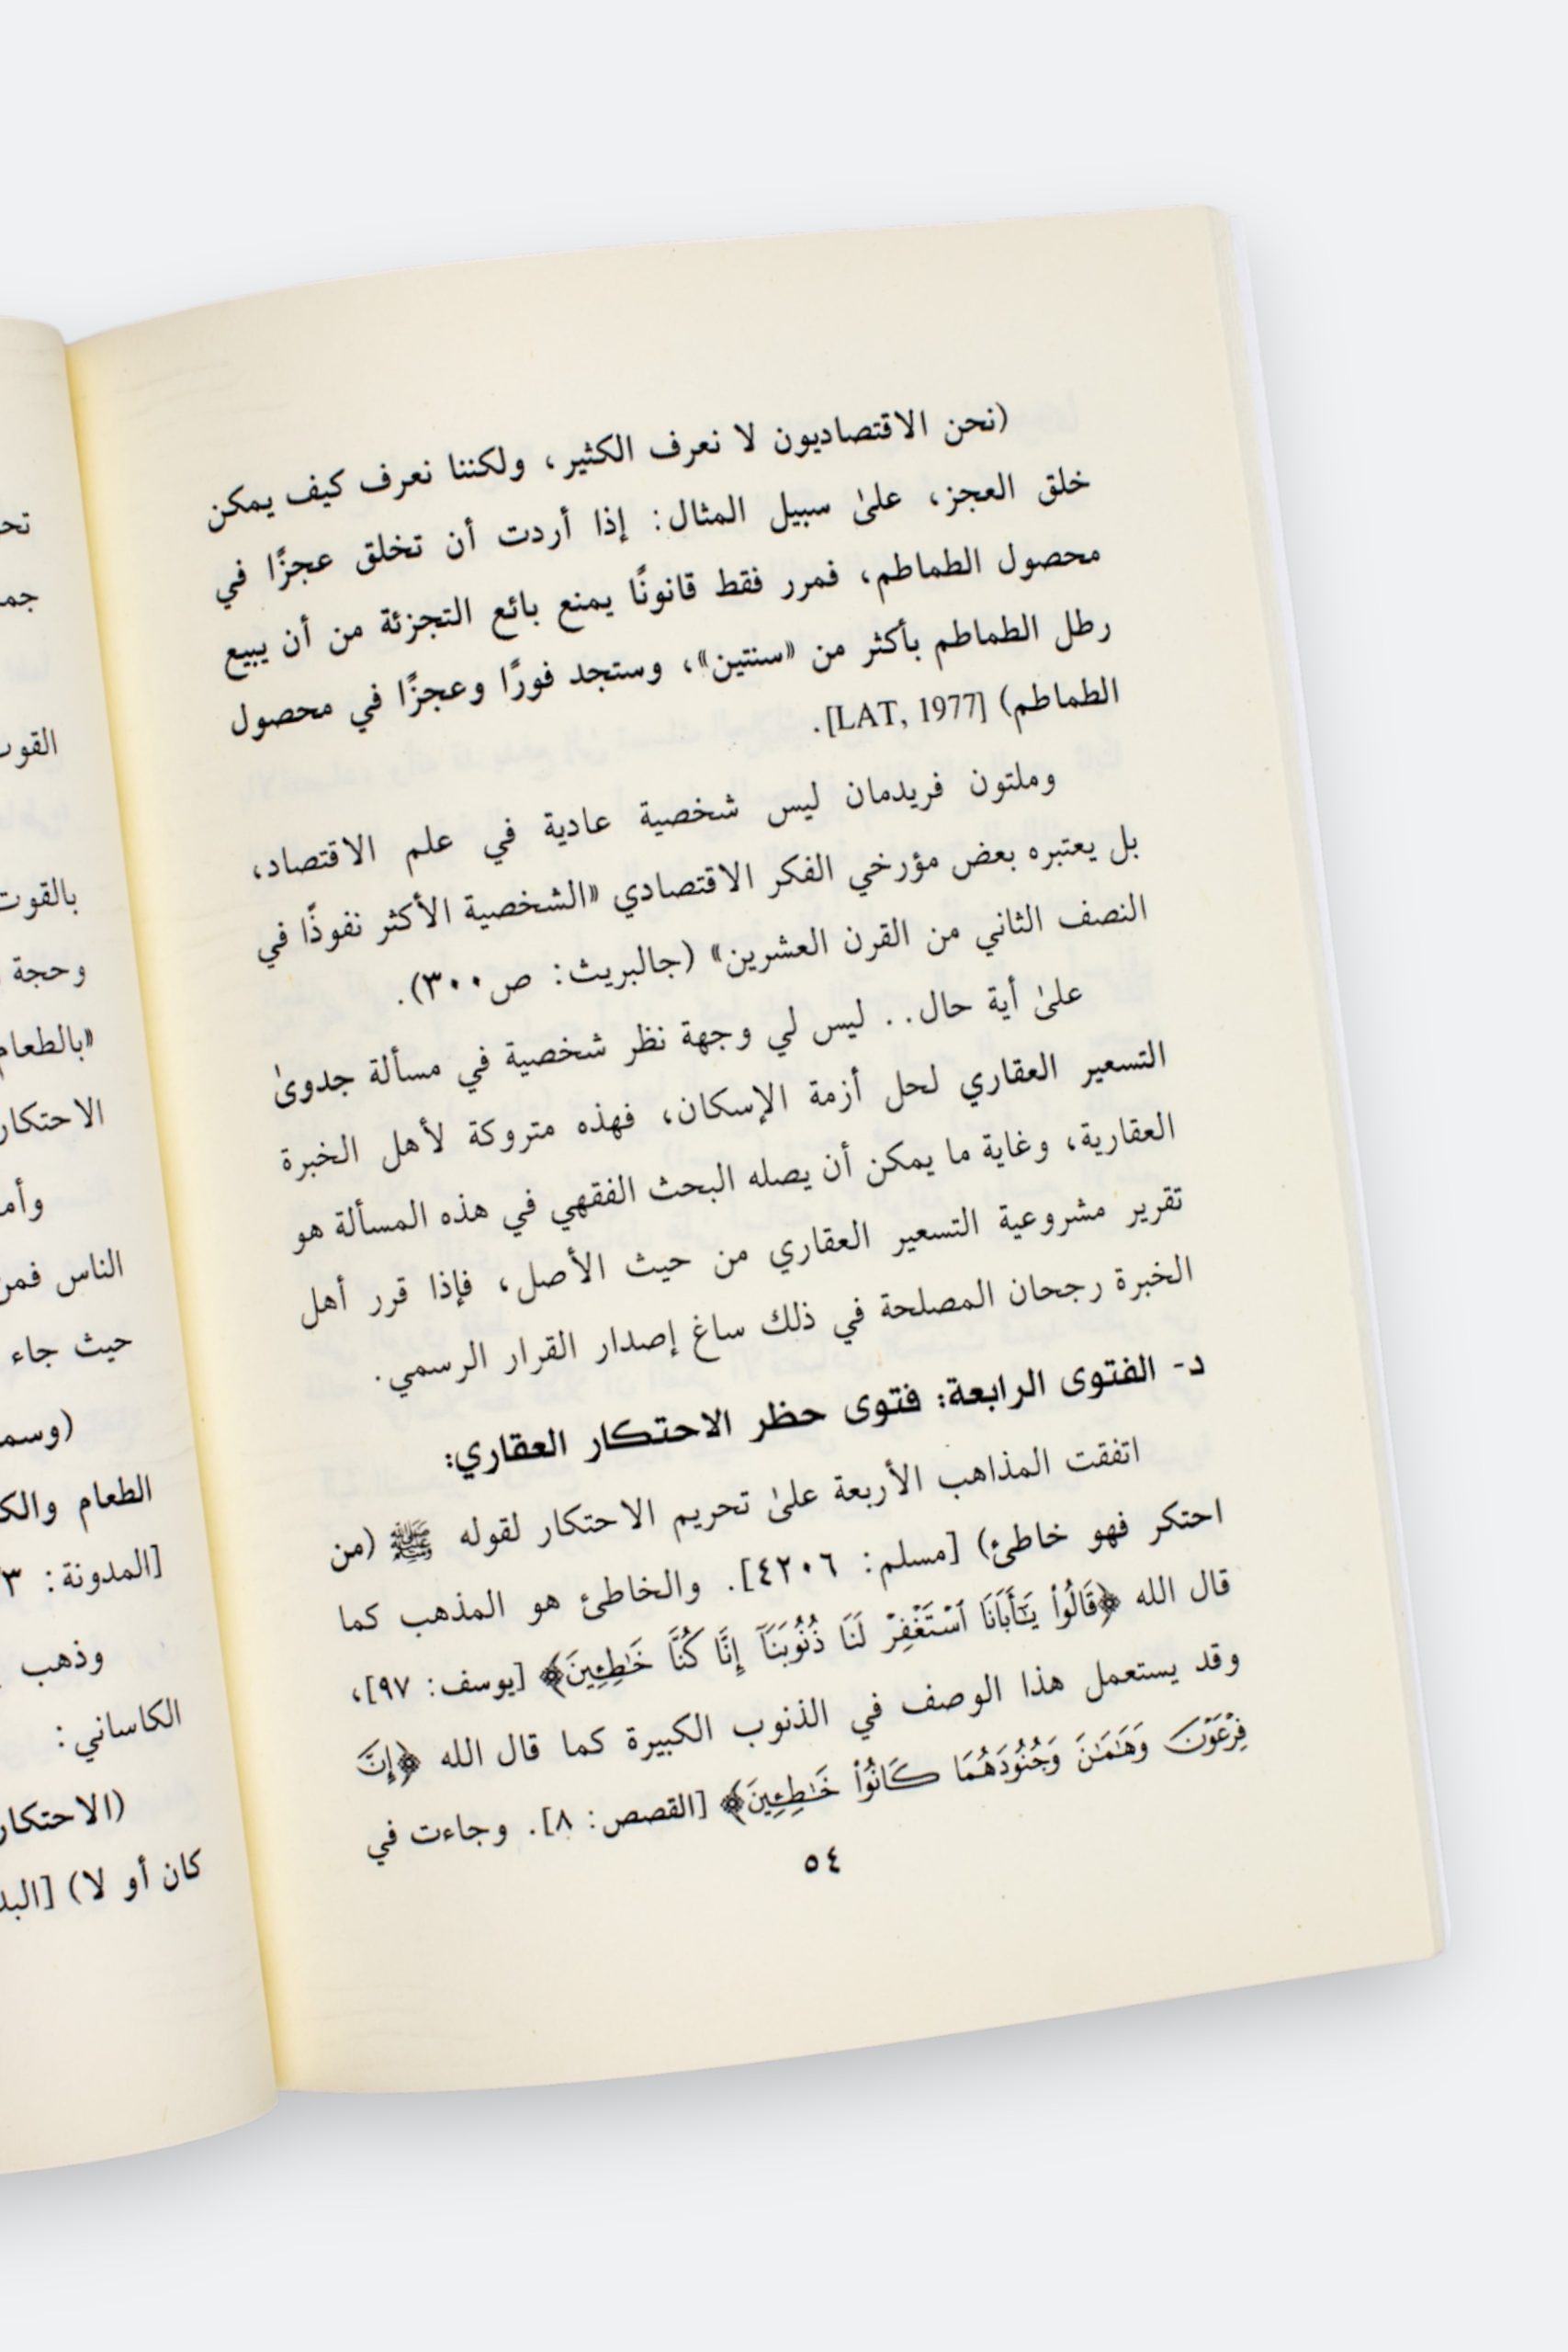 (نحن الاقتصاديون لا نعرف الكثير، ولكننا نعرف كيف يمكن
خلق العجز، علىٰ سبيل المثال: إذا أردت أن تخلق عجزًا في
محصول الطماطم، فمرر فقط قانونًا يمنع بائع التجزئة من أن يبيع
رطل الطماطم بأكثر من «سنتين»، وستجد فورًا وعجزًا في محصول
الطماطم) [LAT, 1977].
وملتون فريدمان ليس شخصية عادية في علم الاقتصاد،
بل يعتبره بعض مؤرخي الفكر الاقتصادي «الشخصية الأكثر نفوذًا في
النصف الثاني من القرن العشرين» (جالبريث: ص٣٠٠).
علىٰ أية حال.. ليس لي وجهة نظر شخصية في مسألة جدوىٰ
التسعير العقاري لحل أزمة الإسكان، فهذه متروكة لأهل الخبرة
العقارية، وغاية ما يمكن أن يصله البحث الفقهي في هذه المسألة هو
تقرير مشروعية التسعير العقاري من حيث الأصل، فإذا قرر أهل
الخبرة رجحان المصلحة في ذلك ساغ إصدار القرار الرسمي.
د- الفتوى الرابعة: فتوى حظر الاحتكار العقاري:
اتفقت المذاهب الأربعة علىٰ تحريم الاحتكار لقوله ﷺ (من
احتكر فهو خاطئ) [مسلم: ٤٢٠٦]. والخاطئ هو المذهب كما
قال الله ﴿قَالُواْ يَٰٓأَبَانَا ٱسۡتَغۡفِرۡ لَنَا ذُنُوبَنَآ إِنَّا كُنَّا خَٰطِـِٔينَ﴾ [يوسف: ٩٧]،
وقد يستعمل هذا الوصف في الذنوب الكبيرة كما قال الله ﴿إِنَّ
فِرۡعَوۡنَ وَهَٰمَٰنَ وَجُنُودَهُمَا كَانُواْ خَٰطِـِٔينَ﴾ [القصص: ٨]. وجاءت في
٥٤
القوت
بالقوت
وحجة
«بالطعام
الاحتكار
الناس فمن
حيث جاء
(وسم
الطعام والك
[المدونة: ٣
وذهب
الكاساني:
(الاحتكار
كان أو لا) [البد